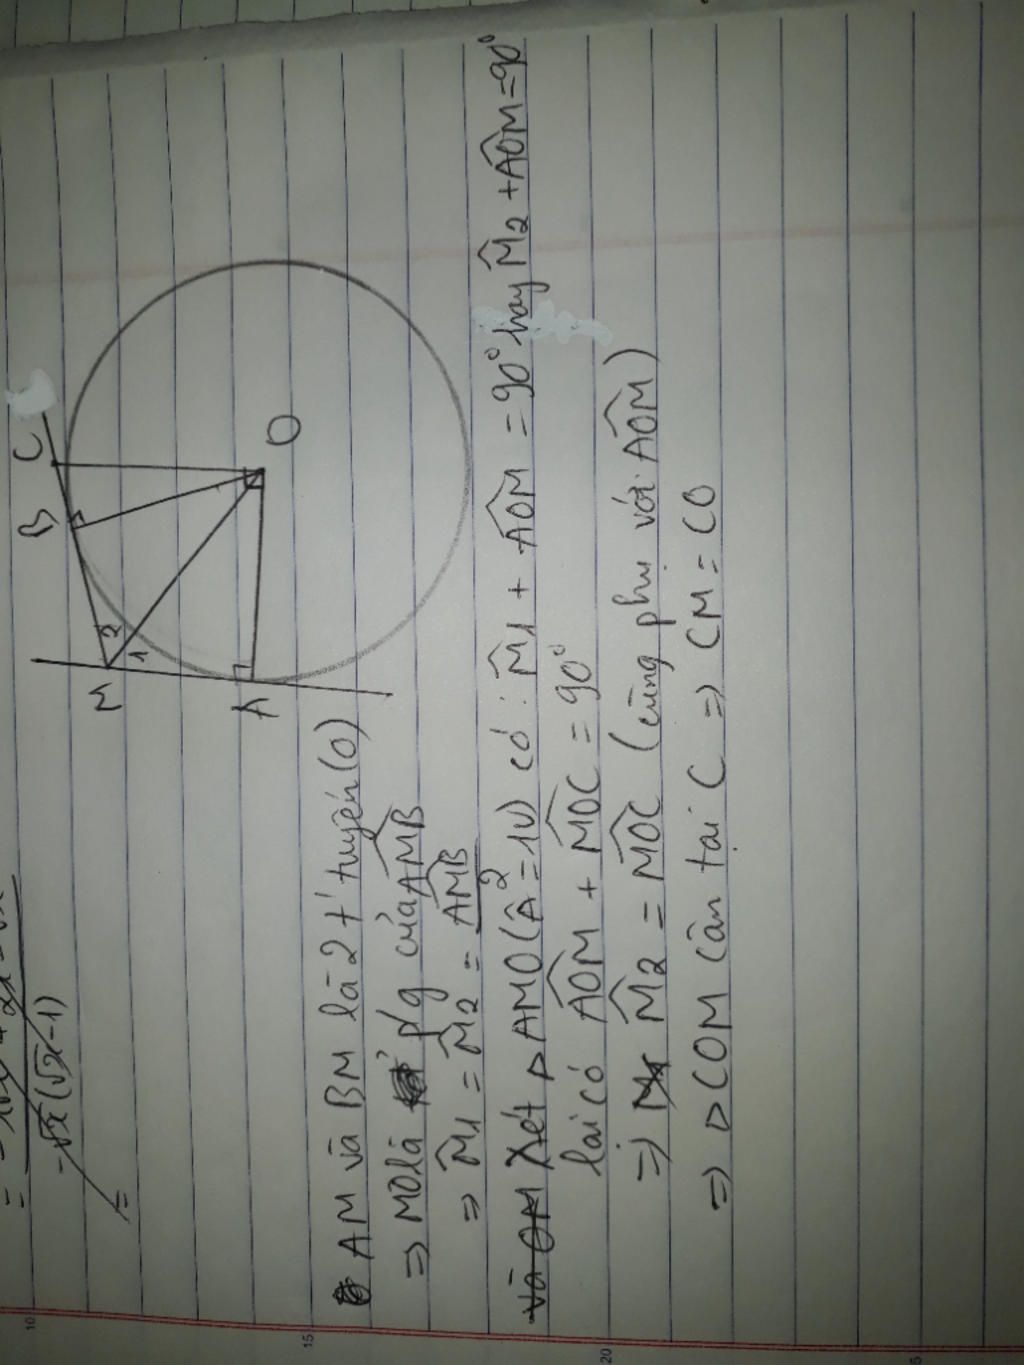 =
-√x(√x-1)
=
C
B
M
2
1
O
A
AM và BM là 2 t' tuyến(O)
=> MO là p/g của AMB
=> M1 = M2 = AMB
2
và OM Xét △AMO(Â=1V) có: M1 + AOM = 90° hay M2 + AOM = 90°
lại có AOM + MOC = 90°
=> M2 = MOC (cùng phụ với AOM)
=> △COM cân tại C => CM = CO
10
15
20